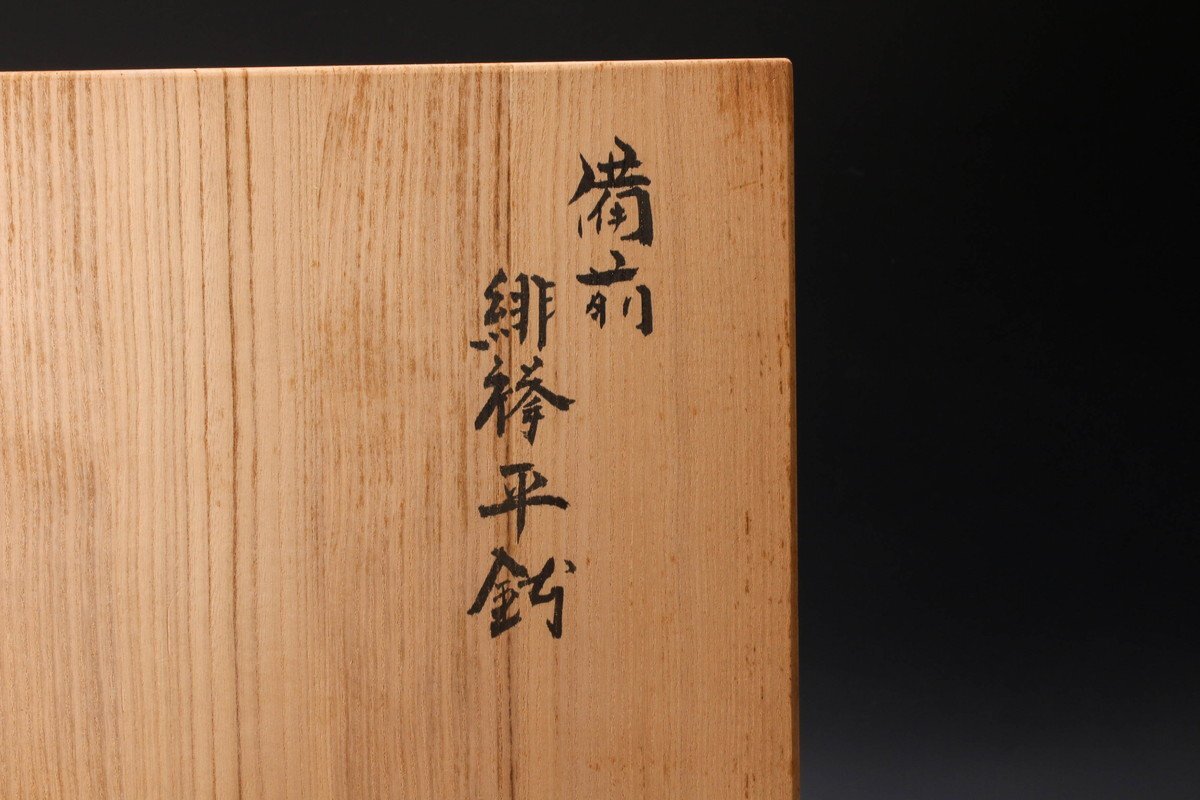 備前
緋襷平鉢